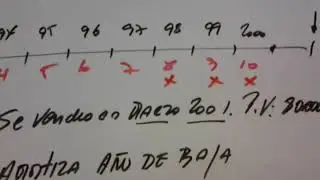 94 95 96 97 98 99 2000
4 5 6 7 8 9 10
x x x
Se vendio en MARZO 2001. P.V: 80000
AMORTIZA AÑO DE BAJA